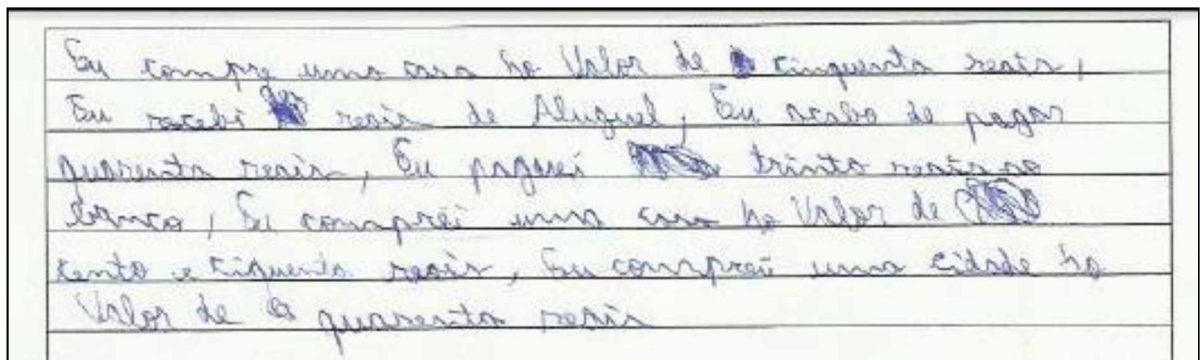 Eu compre uma casa ho Valor de cinquenta reais,
Eu recebi dez reais de Aluguel, Eu acabo de pagar
quarenta reais, Eu paguei trinta reais no
banco, Eu comprei uma casa ho Valor de
cento e ciquenta reais, Eu comprei uma cidade ho
Valor de quarenta reais